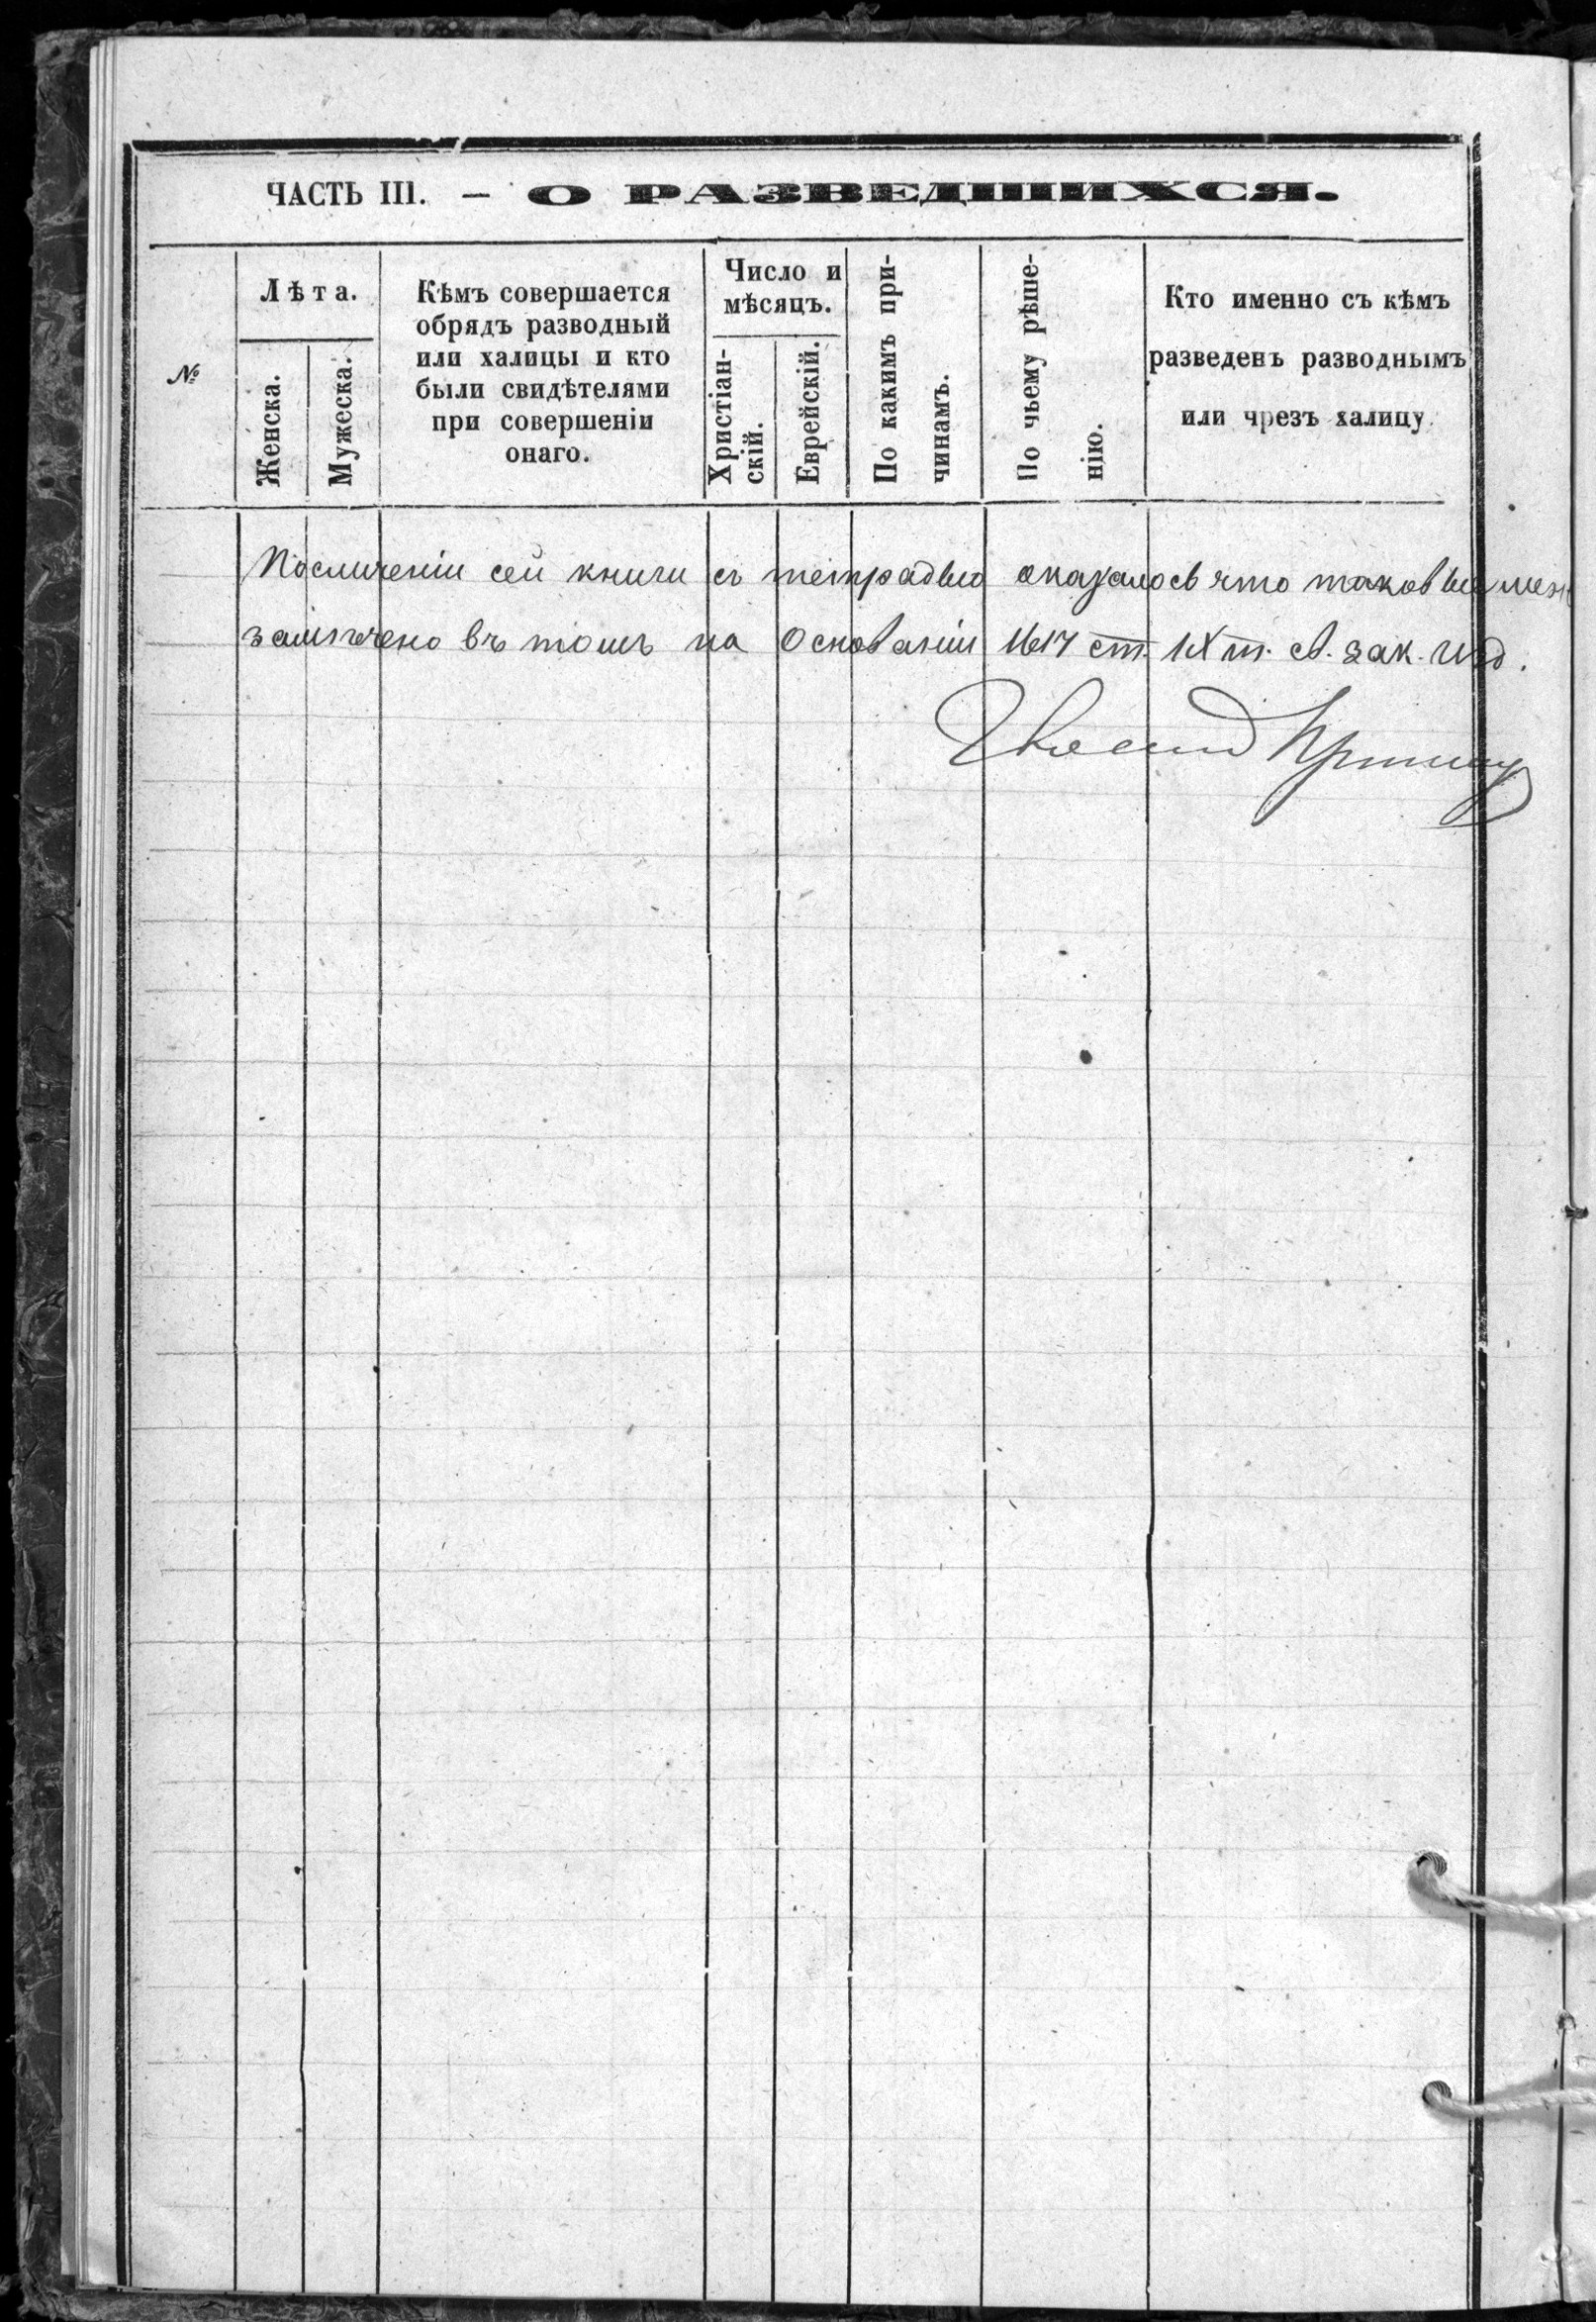 ЧАСТЬ III. — О РАЗВЕДШИХСЯ.
№
Лѣта.
Женска.
Мужеска.
Кѣмъ совершается
обрядъ разводный
или халицы и кто
были свидѣтелями
при совершеніи
онаго.
Число и
мѣсяцъ.
Христіан-
скій.
Еврейскій.
По какимъ при-
чинамъ.
По чьему рѣше-
нію.
Кто именно съ кѣмъ
разведенъ разводнымъ
или чрезъ халицу.
По сличеніи сей книги съ тетрадью оказалось что таковые
замѣчено въ томъ на основаніи 1617 ст. IX т. св. зак. изд.